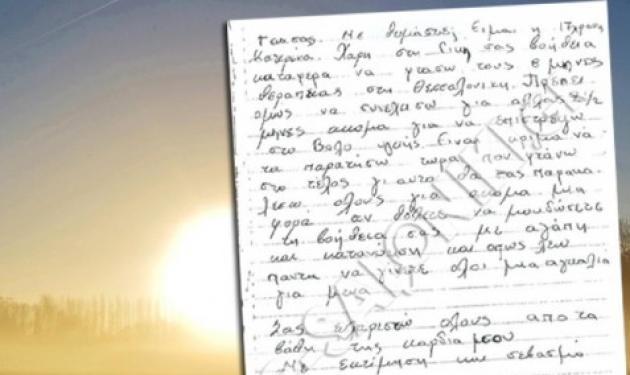 Γειασας. Με θυμάστε; Ειμαι η 17χρονη
Κατερίνα. Χαρη στη δικη σας βοήθεια
καταφερα να φτασω τους 8 μηνες
θεραπειας στη Θεσσαλονικη. Πρεπει
ομως να συνεχισω για αλλους 2½
μηνες ακομα για να επιστρεψω
στο Βολο υγιης. Ειναι κριμα να
τα παρατησω τωρα που φτανω
στο τέλος γι αυτο θα σας παρακα
λεσω ολους για ακομα μια
φορα αν θελετε να μου δώσετε
τη βοήθεια σας με αγάπη
και κατανοηση και οπως λεω
παντα να γίνετε ολοι μια αγκαλιά
για μενα
Σας ευχαριστώ ολους απο τα
βάθη της καρδια μου
Με εκτίμηση και σεβασμό